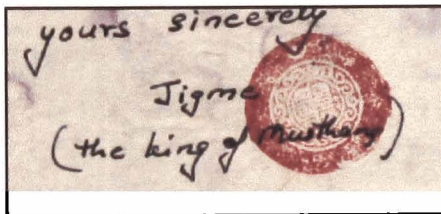 yours sincerely
Jigme
(the king of Musthang)